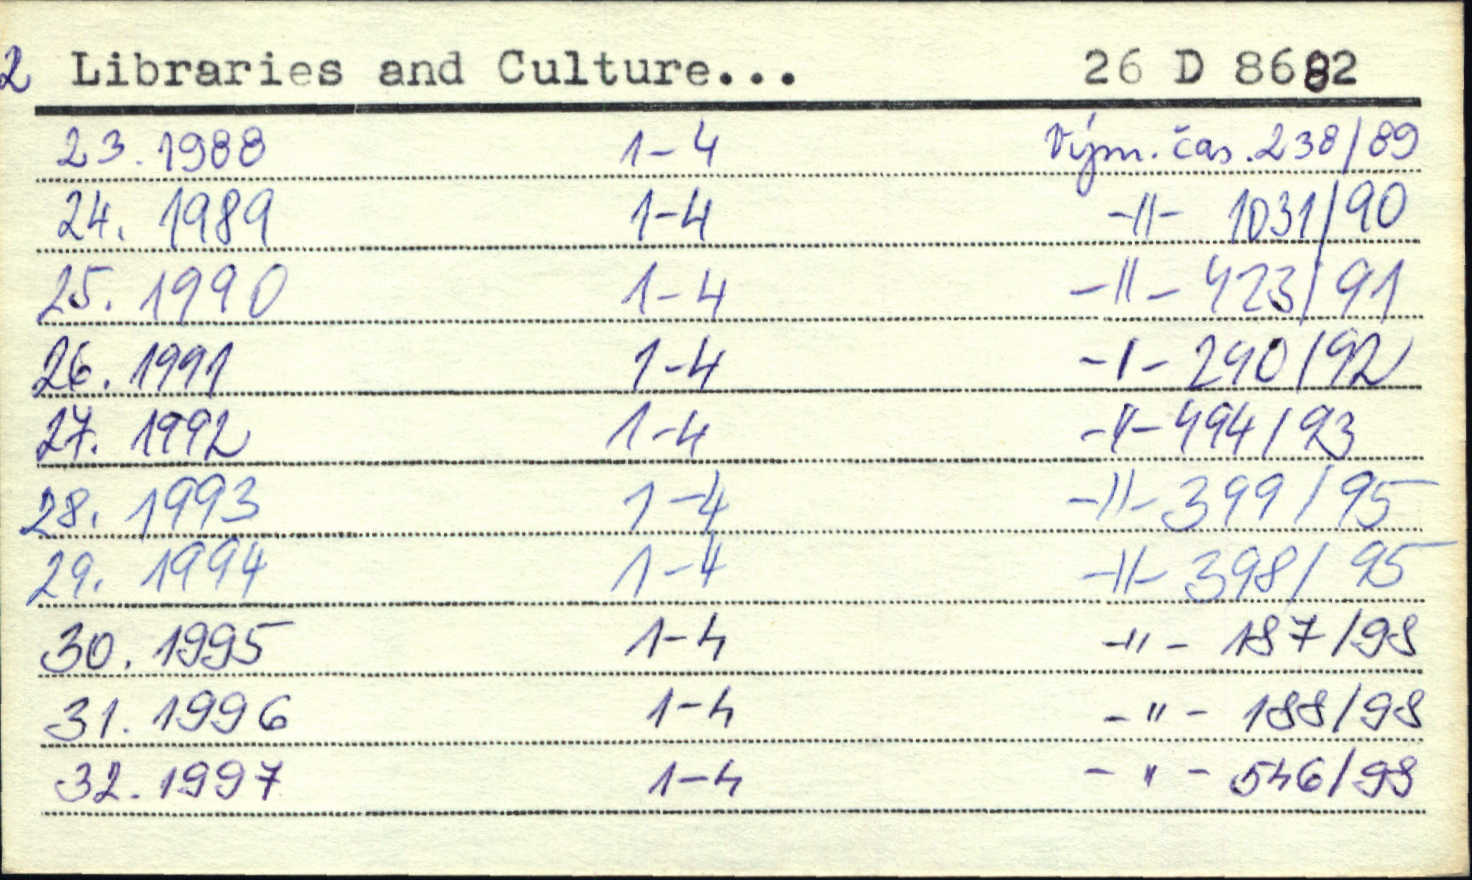 2 Libraries and Culture... 26 D 8682
23. 1988 1-4 Vým. čas. 238/89
24. 1989 1-4 -||- 1031/90
25. 1990 1-4 -||- 423/91
26. 1991 1-4 -|- 290/92
27. 1992 1-4 -||- 494/93
28. 1993 1-4 -||- 399/95
29. 1994 1-4 -||- 398/95
30. 1995 1-4 -||- 187/98
31. 1996 1-4 -"- 188/98
32. 1997 1-4 -"- 546/98